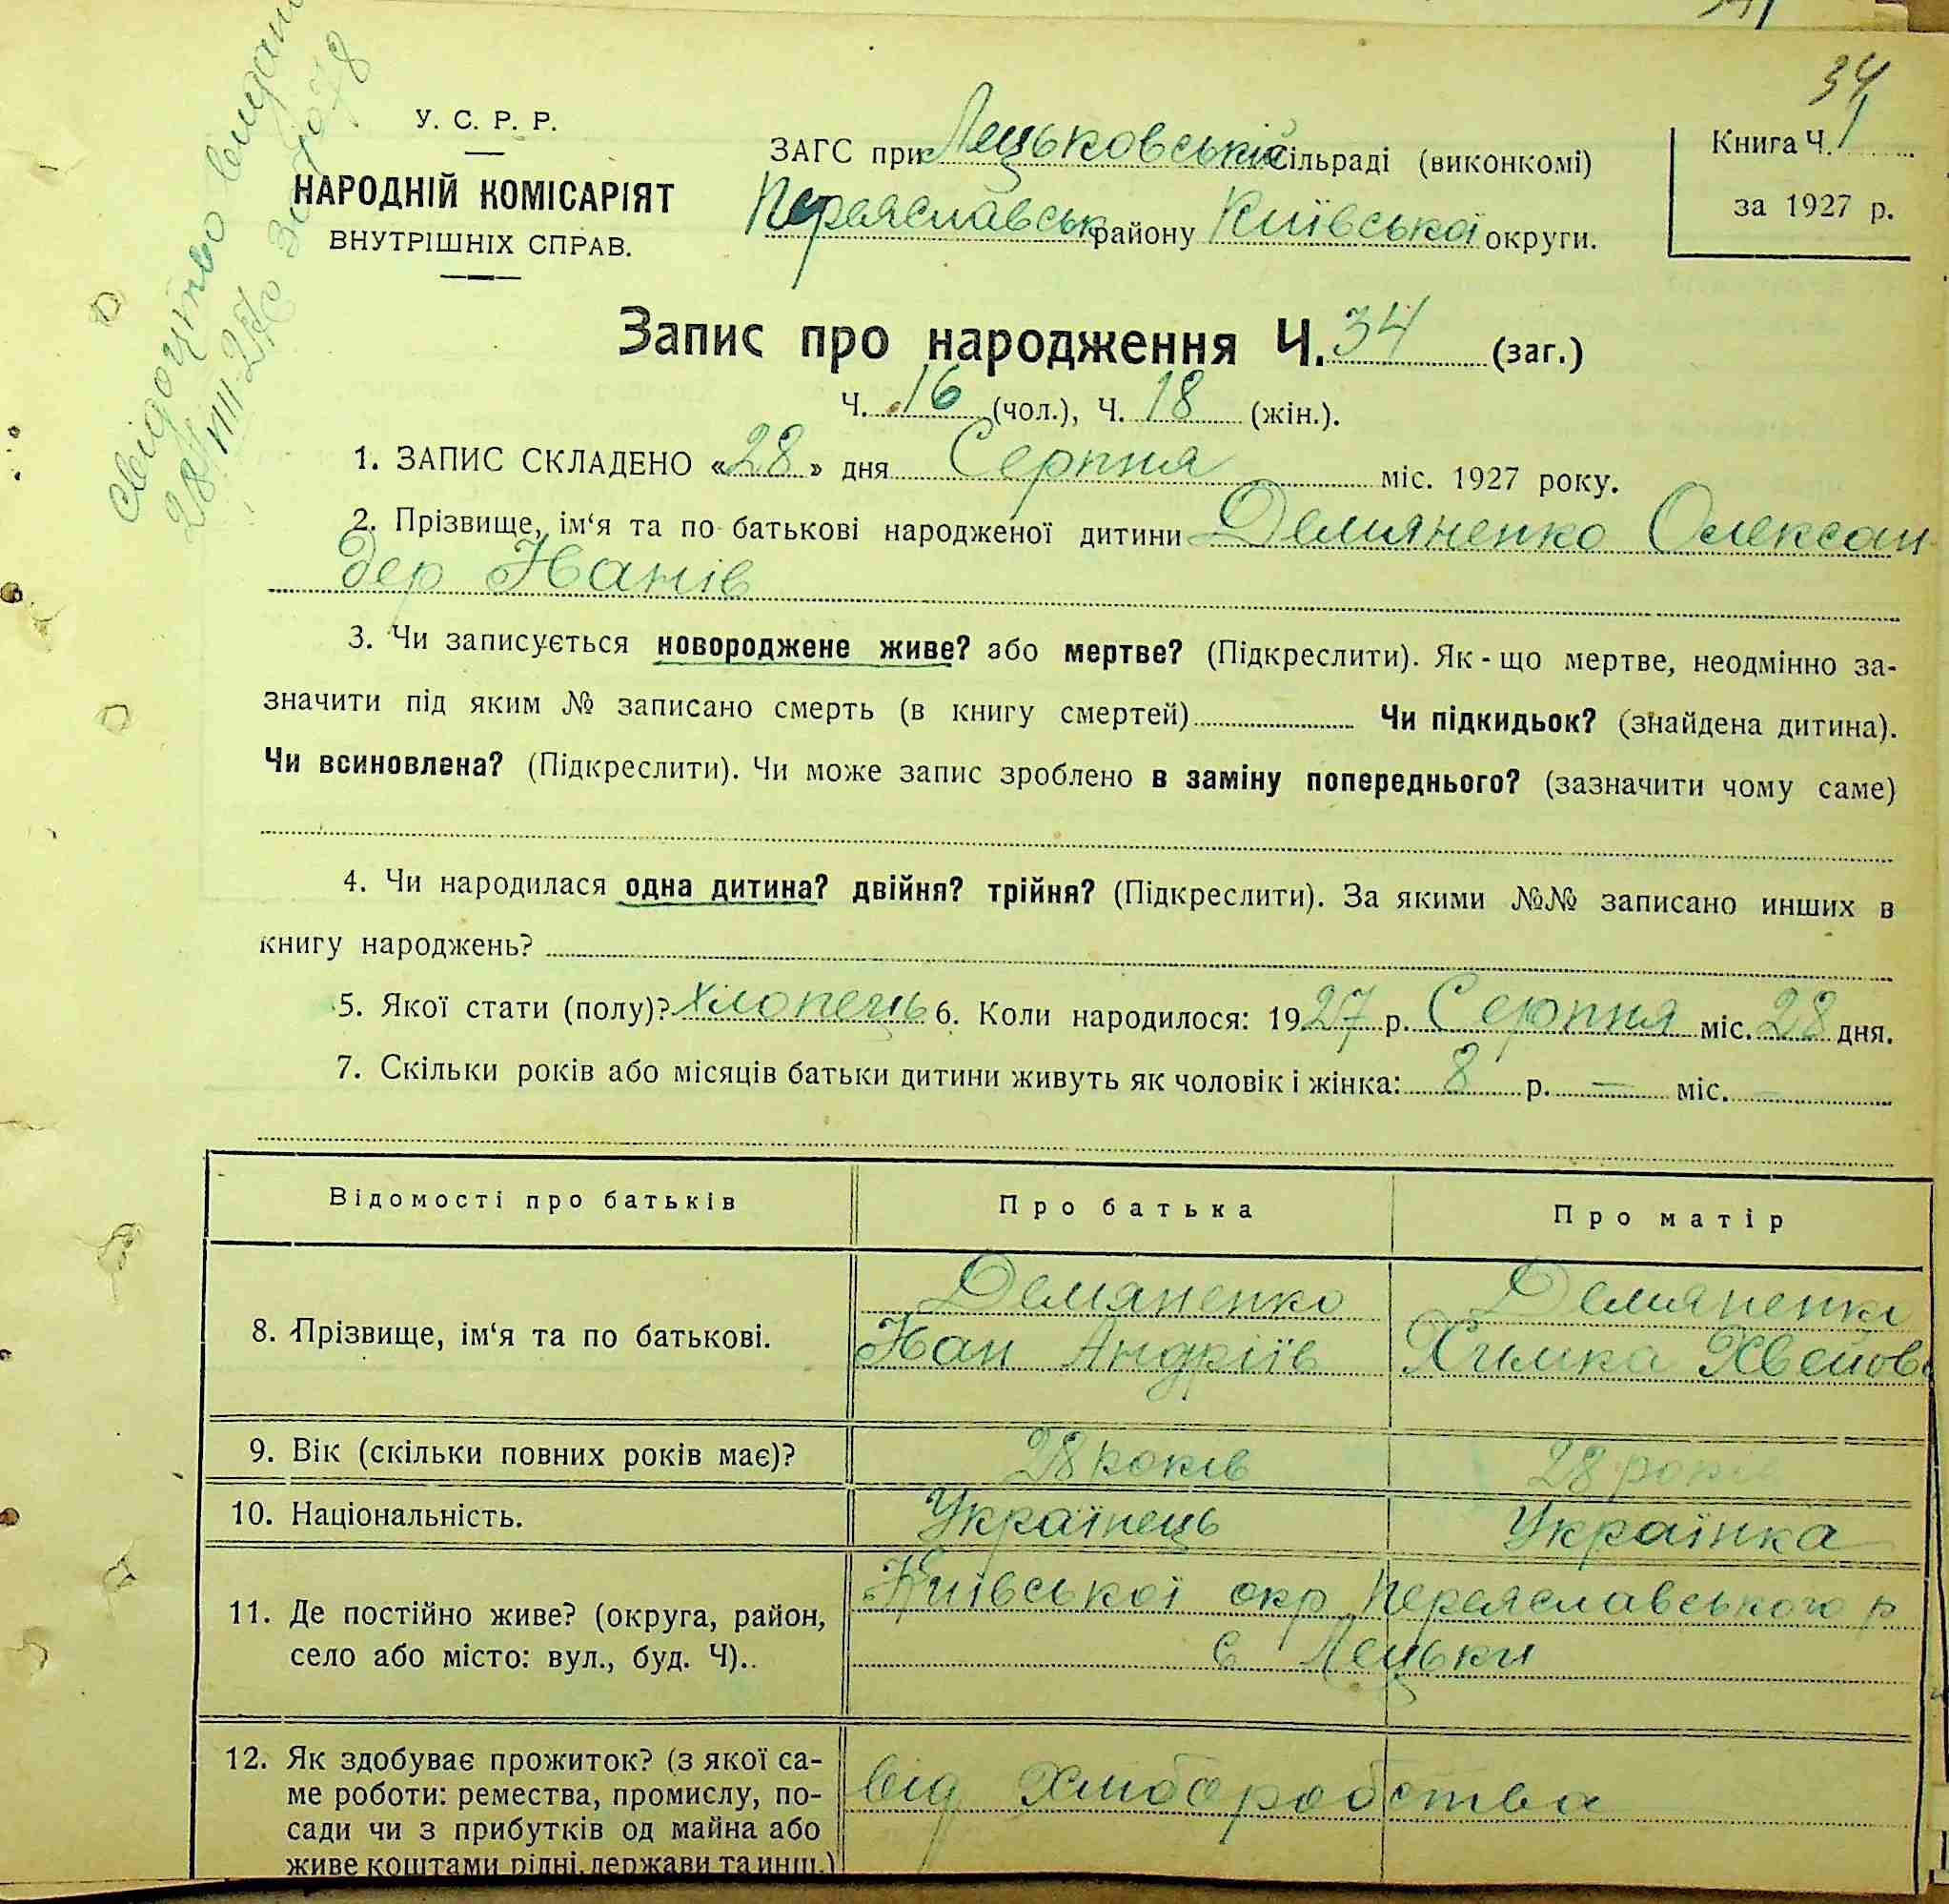 34
У. С. Р. Р.
НАРОДНІЙ КОМІСАРІЯТ
ВНУТРІШНІХ СПРАВ.
ЗАГС при Лецьковській сільраді (виконкомі)
Переяславськ району Київської округи.
Книга Ч. 1
за 1927 р.
Свідоцтво видано
28/VIII-27 р за
Запис про народження Ч. 34 (заг.)
Ч. 16 (чол.), Ч. 18 (жін.).
1. ЗАПИС СКЛАДЕНО «28» дня Серпня міс. 1927 року.
2. Прізвище, ім‘я та по батькові народженої дитини Демяненко Олексан
дер Іванів
3. Чи записується новороджене живе? або мертве? (Підкреслити). Як-що мертве, неодмінно за-
значити під яким № записано смерть (в книгу смертей) Чи підкидьок? (знайдена дитина).
Чи всиновлена? (Підкреслити). Чи може запис зроблено в заміну попереднього? (зазначити чому саме)
4. Чи народилася одна дитина? двійня? трійня? (Підкреслити). За якими №№ записано инших в
книгу народжень?
5. Якої стати (полу)? хлопець 6. Коли народилося: 1927 р. Серпня міс. 28 дня.
7. Скільки років або місяців батьки дитини живуть як чоловік і жінка: 8 р. — міс. —
Відомості про батьків Про батька Про матір
8. Прізвище, ім‘я та по батькові.
Демяненко Демяненко
Іван Андріїв Химка
9. Вік (скільки повних років має)? 28 років 28 років
10. Національність. Українець Українка
11. Де постійно живе? (округа, район,
село або місто: вул., буд. Ч)..
Київської окр Переяславського р
с Лецьки
12. Як здобуває прожиток? (з якої са-
ме роботи: ремества, промислу, по-
сади чи з прибутків од майна або
живе коштами рідні, держави та инш.)
від Хліборобства